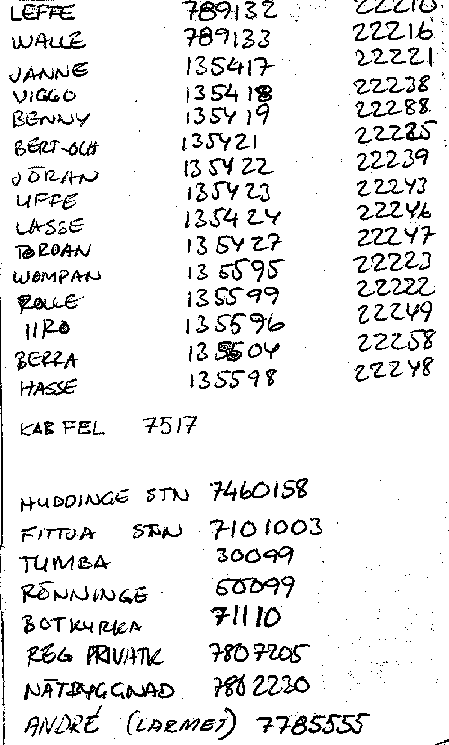 LEFFE 789132 22210
WALLE 789133 22216
JANNE 135417 22221
VIGGO 135418 22238
BENNY 135419 22288
BERT-OCH 135421 22285
JÖRAN 135422 22239
UFFE 135423 22243
LASSE 135424 22246
135427 22247
WOMPAN 135595 22223
ROLLE 135599 22222
IIRO 135596 22249
BERRA 135504 22258
HASSE 135598 22248
KAB FEL 7517
HUDDINGE STN 7460158
FITTJA STN 7101003
TUMBA 30099
RÖNNINGE 60099
BOTKYRKA 71110
REG PRIVATK 7807205
NÄTBYGGNAD 7862230
ANDRÉ (LARMET) 7785555